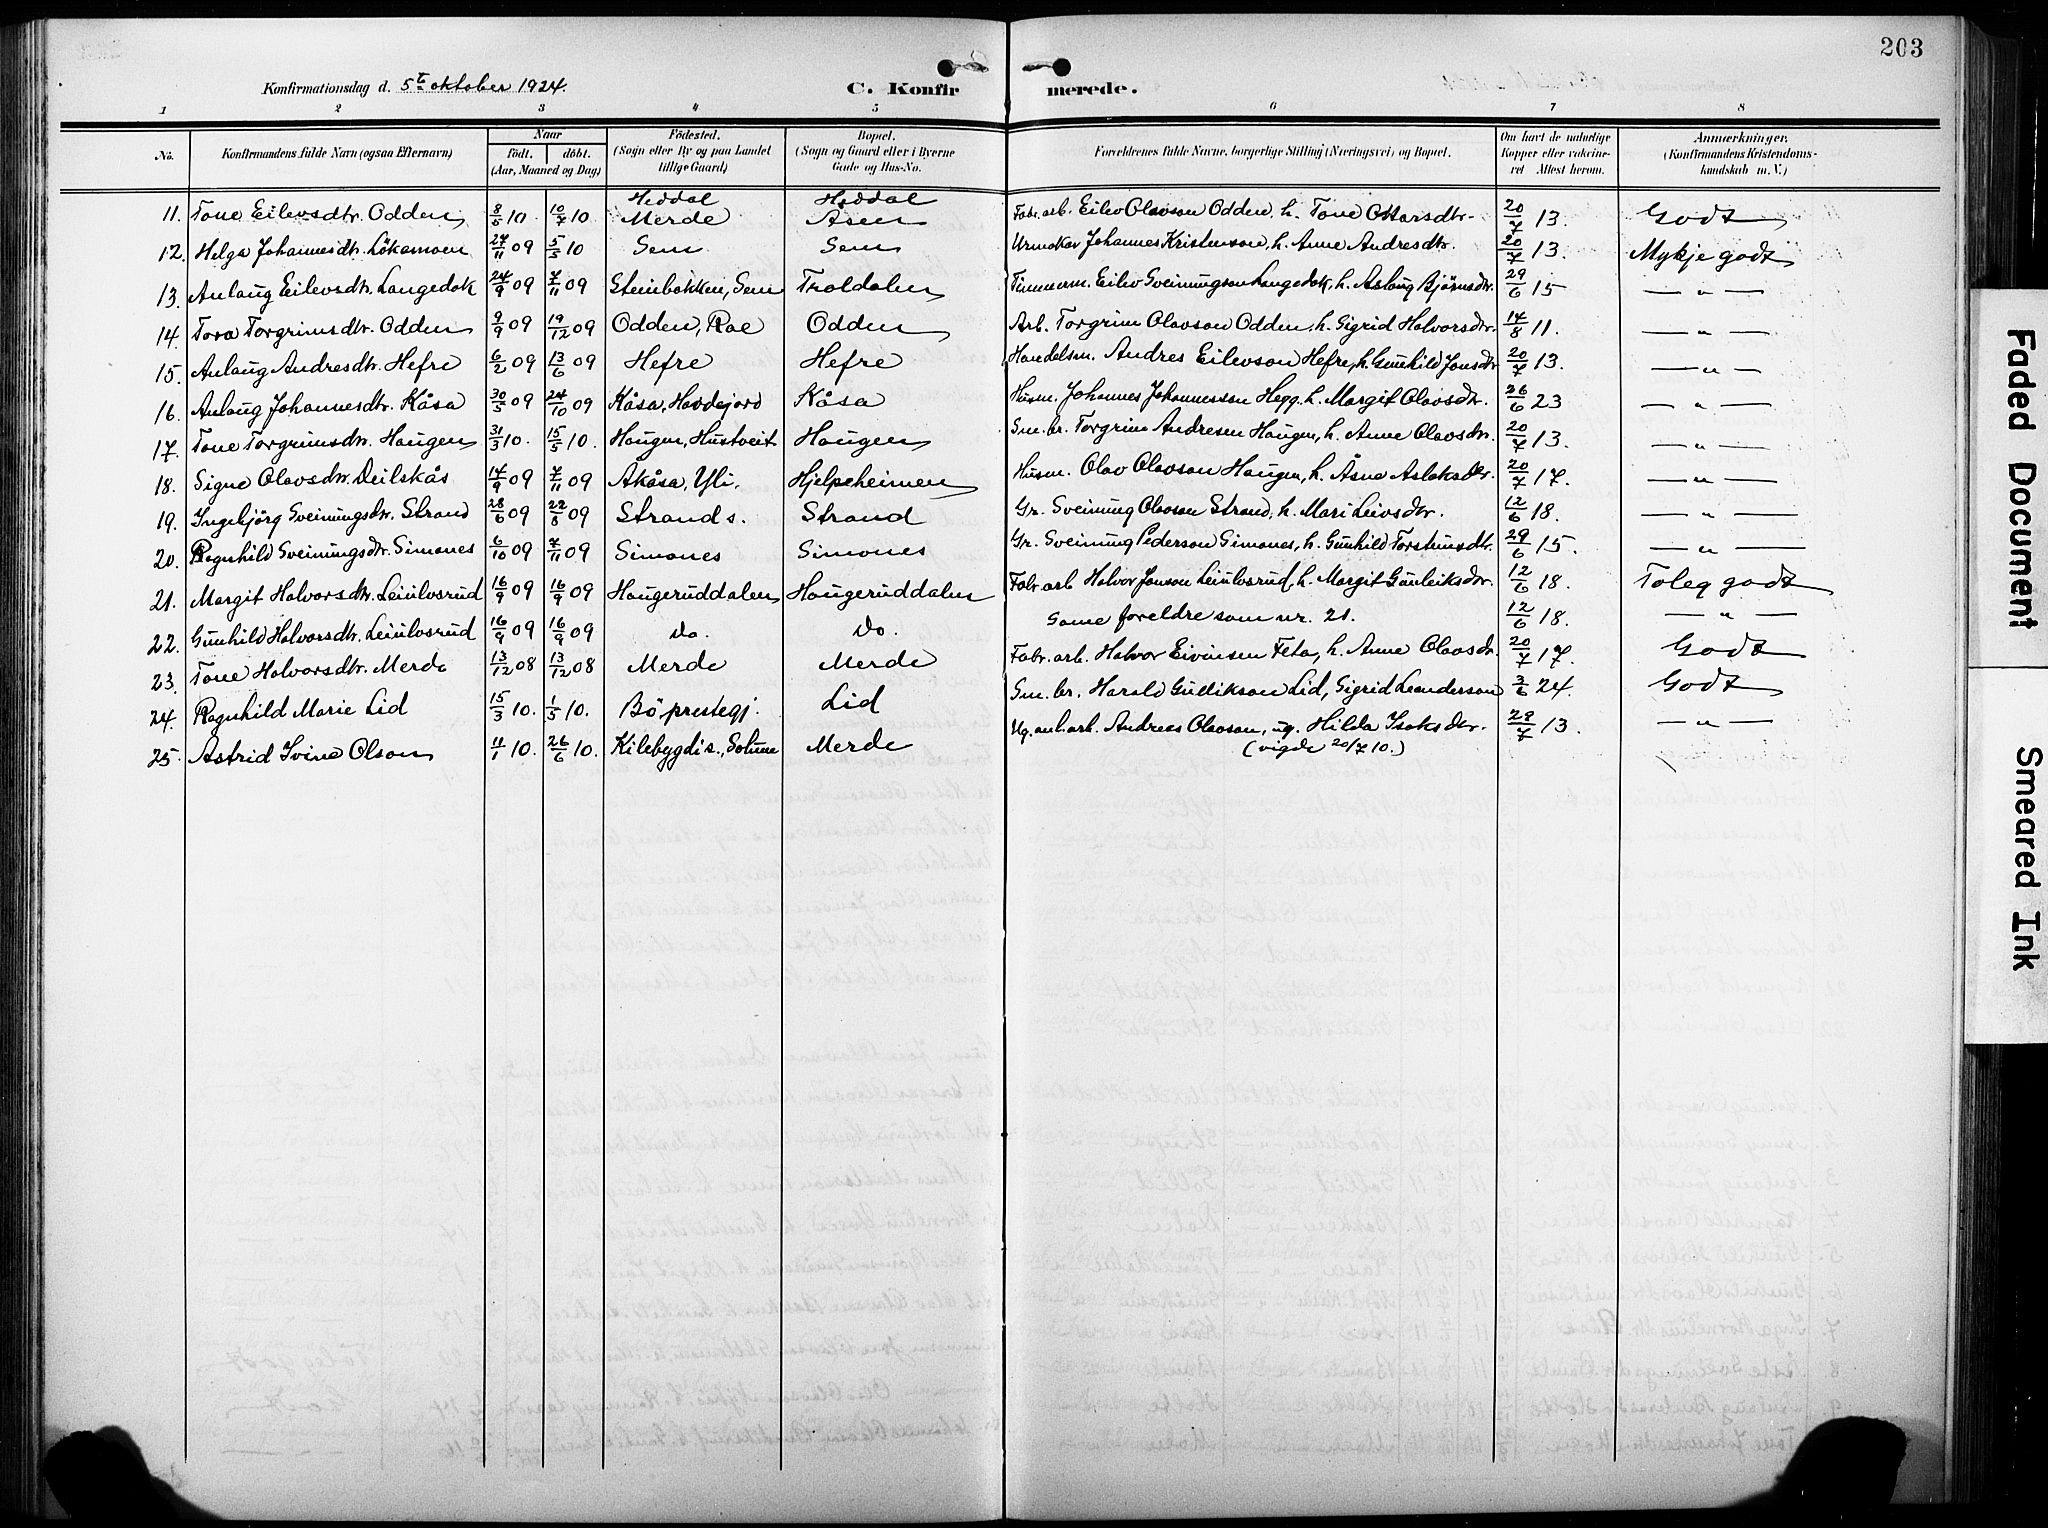 203
Konfirmationsdag d. 5te oktober 1924.
C. Konfirmerede.
1 2 3 4 5 6 7 8
No. Konfirmandens fulde Navn (ogsaa Efternavn) Naar født. døbt. (Aar, Maaned og Dag) Födested. (Sogn eller By og paa Landet tillige Gaard) Bopæl. (Sogn og Gaard eller i Byerne Gade og Hus-No. Forældrenes fulde Navne, borgerlige Stilling (Næringsvei) og Bopæl. Om havt de naturlige Kopper eller vakcineret Attest herom. Anmærkninger. (Konfirmandens Kristendomskundskab m. V.)
Heddal Heddal
11. Tone Eilevsdtr. Odden 8/5 10 10/7 10 Merde Åsen Fabr. arb. Eilev Olavson Odden, h. Tone Ottarsdtr. 20/7 13. Godt
12. Helga Johannesdtr. Lökamoen 27/11 09 5/5 10 Sem Sem Urmaker Johannes Kristenson, h. Anne Andresdtr. 20/7 13. Mykje godt
13. Aslaug Eilevsdtr. Langedok 24/9 09 7/11 09 Steinbakken, Sem Troldalen Timmerm. Eilev Sveinungson Langedok, h. Aslaug Bjørnsdtr. 29/6 15 — " —
14. Tora Torgrimsdtr. Odden 9/9 09 19/12 09 Odden, Rae Odden Arb. Torgrim Olavson Odden, h. Sigrid Halvorsdtr. 14/8 11. — " —
15. Aslaug Andresdtr. Hefre 6/2 09 13/6 09 Hefre Hefre Handelsm. Andres Eilevson Hefre, h. Gunhild Jonsdtr. 20/7 13. — " —
16. Aslaug Johannesdtr. Kåsa 30/5 09 24/10 09 Kåsa, Havdejord Kåsa Husm. Johannes Johannesson Hegg, h. Margit Olavsdtr. 26/6 23 — " —
17. Tone Torgrimsdtr. Haugen 31/3 10. 15/5 10. Haugen, Hustveit Haugen Sm. br. Torgrim Andresen Haugen, h. Anne Olavsdtr. 20/7 13. — " —
18. Signe Olavsdtr. Deilskås 14/9 09 7/11 09 Åkåsa, Yli. Hjelpeheimen Husm. Olav Olavson Haugen, h. Åsne Aslaksdtr. 20/7 17. — " —
19. Ingebjörg Sveinungsdtr. Strand 28/6 09 22/8 09 Strand s. Strand Gr. Sveinung Olavson Strand, h. Mari Leivsdtr. 12/6 18. — " —
20. Ragnhild Sveinungsdtr. Simones 6/10 09 7/11 09 Simones Simones Gr. Sveinung Pederson Simones, h. Gunhild Torsteinsdtr. 29/6 15. — " —
21. Margit Halvorsdtr. Leiulvsrud 16/9 09 16/9 09 Haugeruddalen Haugeruddalen Fabr. arb Halvor Jonson Leiulvsrud, h. Margit Gunleiksdtr. 12/6 18. Toleg godt
22. Gunhild Halvorsdtr. Leiulvsrud 16/9 09 16/9 09 Do. Do. Same foreldre som nr. 21. 12/6 18. — " —
23. Tone Halvorsdtr. Merde 13/12 08 13/12 08 Merde Merde Fabr. arb. Halvor Eivinsen Feta, h. Anne Olavsdr. 20/7 17. Godt
24. Ragnhild Marie Lid 15/3 10. 1/5 10. Bö prestegj. Lid Sm. br. Harald Gullikson Lid, Sigrid Leanderson 3/6 24. Godt
25. Astrid Ivine Olson 11/1 10. 26/6 10. Kilebygdi s., Solum Merde Ug. anl. arb. Andreas Olavson, ug. Hilda Isaksdtr. 29/7 13. — " —
(vigde 20/7 10.)
Faded Document
Smeared Ink